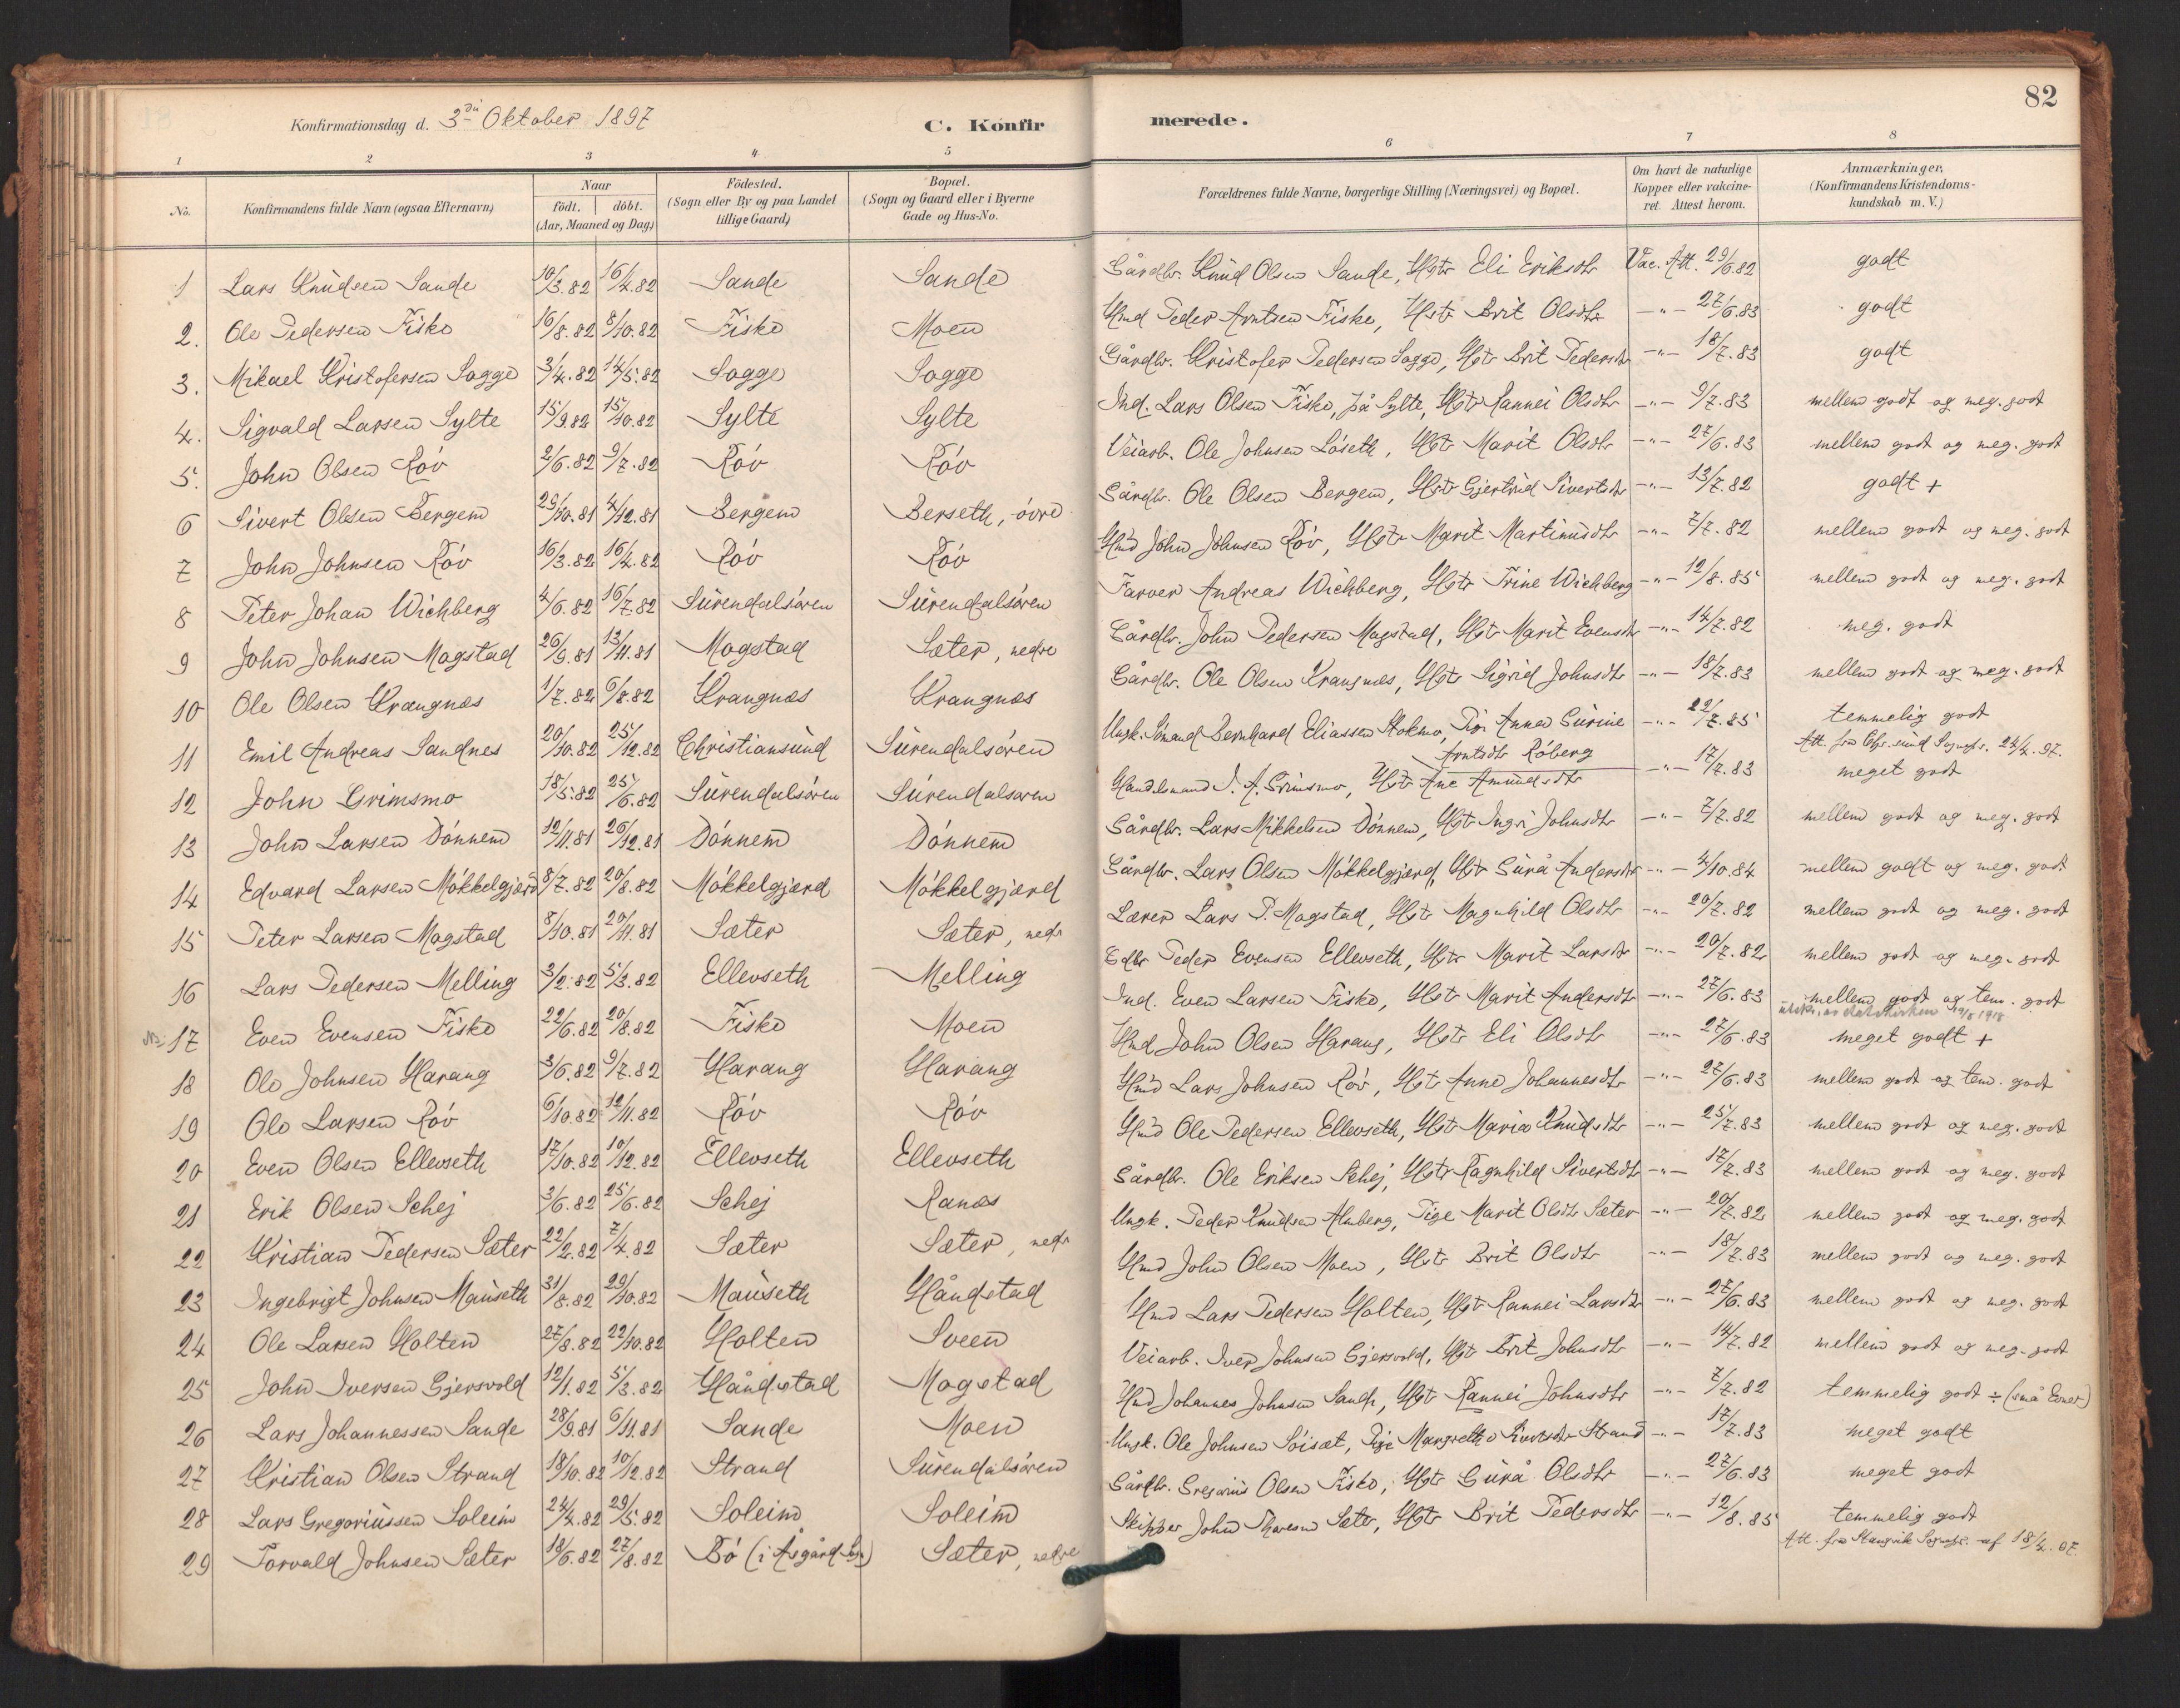 82
Konfirmationsdag d. 3die Oktober 1897 C. Konfirmerede.
1 2 3 4 5 6 7 8
No. Konfirmandens fulde Navn (ogsaa Efternavn) Naar født. døbt. (Aar, Maaned og Dag) Födested. (Sogn eller By og paa Landet tillige Gaard) Bopæl. (Sogn og Gaard eller i Byerne Gade og Hus-No. Forældrenes fulde Navne, borgerlige Stilling (Næringsvei) og Bopæl. Om havt de naturlige Kopper eller vakcineret. Attest herom. Anmærkninger. (Konfirmandens Kristendomskundskab m. V.)
1 Lars Knudsen Sande 10/3.82 16/4.82 Sande Sande Gårdbr. Knud Olsen Sande, Hstr Eli Eriksdtr Vac. Att. 29/6.82 godt
2. Ole Pedersen Fiske 16/8.82 8/10.82 Fiske Moen Hmd Peder Arntsen Fiske, Hstr Brit Olsdtr -"- 27/6.83 godt
3. Mikael Kristofersen Sogge 3/4.82 14/5.82 Sogge Sogge Gårdbr. Kristofer Pedersen Sogge, Hstr Brit Pedersdtr -"- 18/7.83 godt
4. Sigvald Larsen Sylte 15/9.82 15/10.82 Sylte Sylte Ind. Lars Olsen Fiske, på Sylte, Hstr Rannei Olsdtr -"- 9/7.83 mellem godt og meg. godt
5. John Olsen Røv 2/6.82 9/7.82 Røv Røv Veiarb. Ole Johnsen Løseth, Hstr Marit Olsdtr -"- 27/6.83 mellem godt og meg. godt
6 Sivert Olsen Bergem 29/10.81 4/12.81 Bergem Berseth, øvre Gårdbr. Ole Olsen Bergem, Hstr Gjertrud Sivertsdtr -"- 13/7.82 godt +
7 John Johnsen Røv 16/3.82 16/4.82 Røv Røv Hmd John Johnsen Røv, Hstr Marit Martinusdtr -"- 7/7.82 mellem godt og meg. godt
8 Peter Johan Wichberg 4/6.82 16/7.82 Surendalsøren Surendalsøren Farver Andreas Wichberg, Hstr Trine Wichberg -"- 12/8.85 mellem godt og meg. godt
9 John Johnsen Mogstad 26/9.81 13/11.81 Mogstad Sæter, nedre Gårdbr. John Pedersen Mogstad, Hstr Marit Evensdtr -"- 14/7.82 meg. godt
10 Ole Olsen Krangnæs 1/7.82 6/8.82 Krangnæs Krangnæs Gårdbr. Ole Olsen Krangnæs, Hstr Sigrid Johnsdtr -"- 18/7.83 mellem godt og meg. godt
11 Emil Andreas Sandnes 20/10.82 25/12.82 Christiansund Surendalsøren Ungk. Sømand Bernhard Eliassen Stokmo, Pige Anne Gurine Arntsdtr Røberg -"- 22/7.85 temmelig godt
Att. fra Chr.sund Sognepr. 24/4.97.
12 John Grimsmo 18/5.82 25/6.82 Surendalsøren Surendalsøren Handelsmand J. A. Grimsmo, Hstr Ane Amundsdtr -"- 17/7.83 meget godt
13 John Larsen Dønnem 12/11.81 26/12.81 Dønnem Dønnem Gårdbr. Lars Mikkelsen Dønnem, Hstr Ingri Johnsdtr -"- 7/7.82 mellem godt og meg. godt
14 Edvard Larsen Møkkelgjerd 8/7.82 20/8.82 Møkkelgjærd Møkkelgjærd Gårdbr. Lars Olsen Møkkelgjerd, Hstr Gurå Andersdtr -"- 4/10.84 mellem godt og meg. godt
15 Peter Larsen Mogstad 8/10.81 20/11.81 Sæter Sæter, nedr Lærer Lars P. Mogstad, Hstr Magnhild Olsdtr -"- 20/7.82 mellem godt og meg. godt
16 Lars Pedersen Melling 3/2.82 5/3.82 Ellevseth Melling Gdbr. Peder Evensen Ellevseth, Hstr Marit Larsdtr -"- 20/7.82 mellem godt og meg. godt
17 Even Evensen Fiske 22/6.82 20/8.82 Fiske Moen Ind. Even Larsen Fiske, Hstr Marit Andersdtr -"- 27/6.83 mellem godt og tem. godt
18 Ole Johnsen Harang 3/6.82 9/7.82 Harang Harang Hmd John Olsen Harang, Hstr Eli Olsdtr -"- 27/6.83 meget godt +
19 Ole Larsen Røv 6/10.82 12/11.82 Røv Røv Hmd Lars Johnsen Røv, Hstr Anne Johannesdtr -"- 27/6.83 mellem godt og tem. godt
20 Even Olsen Ellevseth 17/10.82 10/12.82 Ellevseth Ellevseth Hmd Ole Pedersen Ellevseth, Hstr Maria Knudsdtr -"- 25/7.83 mellem godt og meg. godt
21 Erik Olsen Schej 3/6.82 25/6.82 Schej Ranæs Gårdbr. Ole Eriksen Schej, Hstr Ragnhild Sivertsdtr -"- 17/7.83 mellem godt og meg. godt
22 Kristian Pedersen Sæter 22/2.82 7/4.82 Sæter Sæter, nedr Ungk. Peder Knudsen Almberg, Pige Marit Olsdtr Sæter -"- 20/7.82 mellem godt og meg. godt
23 Ingebrigt Johnsen Mauseth 31/8.82 29/10.82 Mauseth Håndstad Hmd John Olsen Moen, Hstr Brit Olsdtr -"- 18/7.83 mellem godt og meg. godt
24 Ole Larsen Holten 27/8.82 22/10.82 Holten Sveen Hmd Lars Pedersen Holten, Hstr Rannei Larsdtr -"- 27/6.83 mellem godt og meg. godt
25 John Iversen Gjersvold 12/1.82 5/3.82 Håndstad Mogstad Veiarb. Iver Johnsen Gjersvold, Hstr Brit Johnsdtr -"- 14/7.82 mellem godt og meg. godt
26 Lars Johannessen Sande 28/9.81 6/11.81 Sande Moen Hmd Johannes Johnsen Sande, Hstr Rannei Johnsdtr -"- 7/7.82 temmelig godt ÷ (små Evner)
27 Kristian Olsen Strand 18/10.82 10/12.82 Strand Surendalsøren Ungk. Ole Johnsen Soisæt, Pige Margrethe Sivertsdtr Strand -"- 17/7.83 meget godt
28 Lars Gregoriussen Soleim 24/4.82 29/5.82 Soleim Soleim Gårdbr. Gregorius Olsen Fiske, Hstr Gurå Olsdtr -"- 27/6.83 meget godt
29 Torvald Johnsen Sæter 18/6.82 27/8.82 Bø (i Åsgård Sogn) Sæter, nedre Skipper John Sæter, Hstr Brit Pedersdtr -"- 12/8.85 temmelig godt
Att. fra Stangvik Sognepr. af 18/4.97.